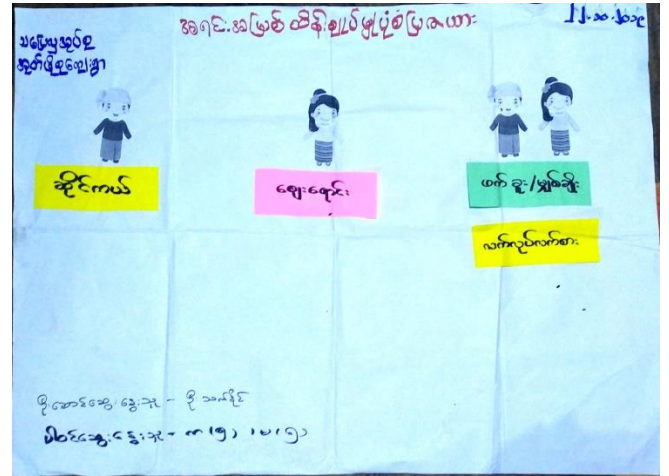 အရင်းအမြစ် ထိန်းချုပ်မှုပုံစံပြဇယား
သပြေယုအုပ်စု
အုတ်ဖိုစုကျေးရွာ
ဆိုင်ကယ်
ဈေးရောင်း
ဖက်ခူး/မျှစ်ချိုး
လက်လုပ်လက်စား
ဦးဆောင်ဆွေးနွေးသူ - ဦးသက်နိုင်
ပါဝင်ဆွေးနွေးသူ - က (၅) ၊ မ (၅)